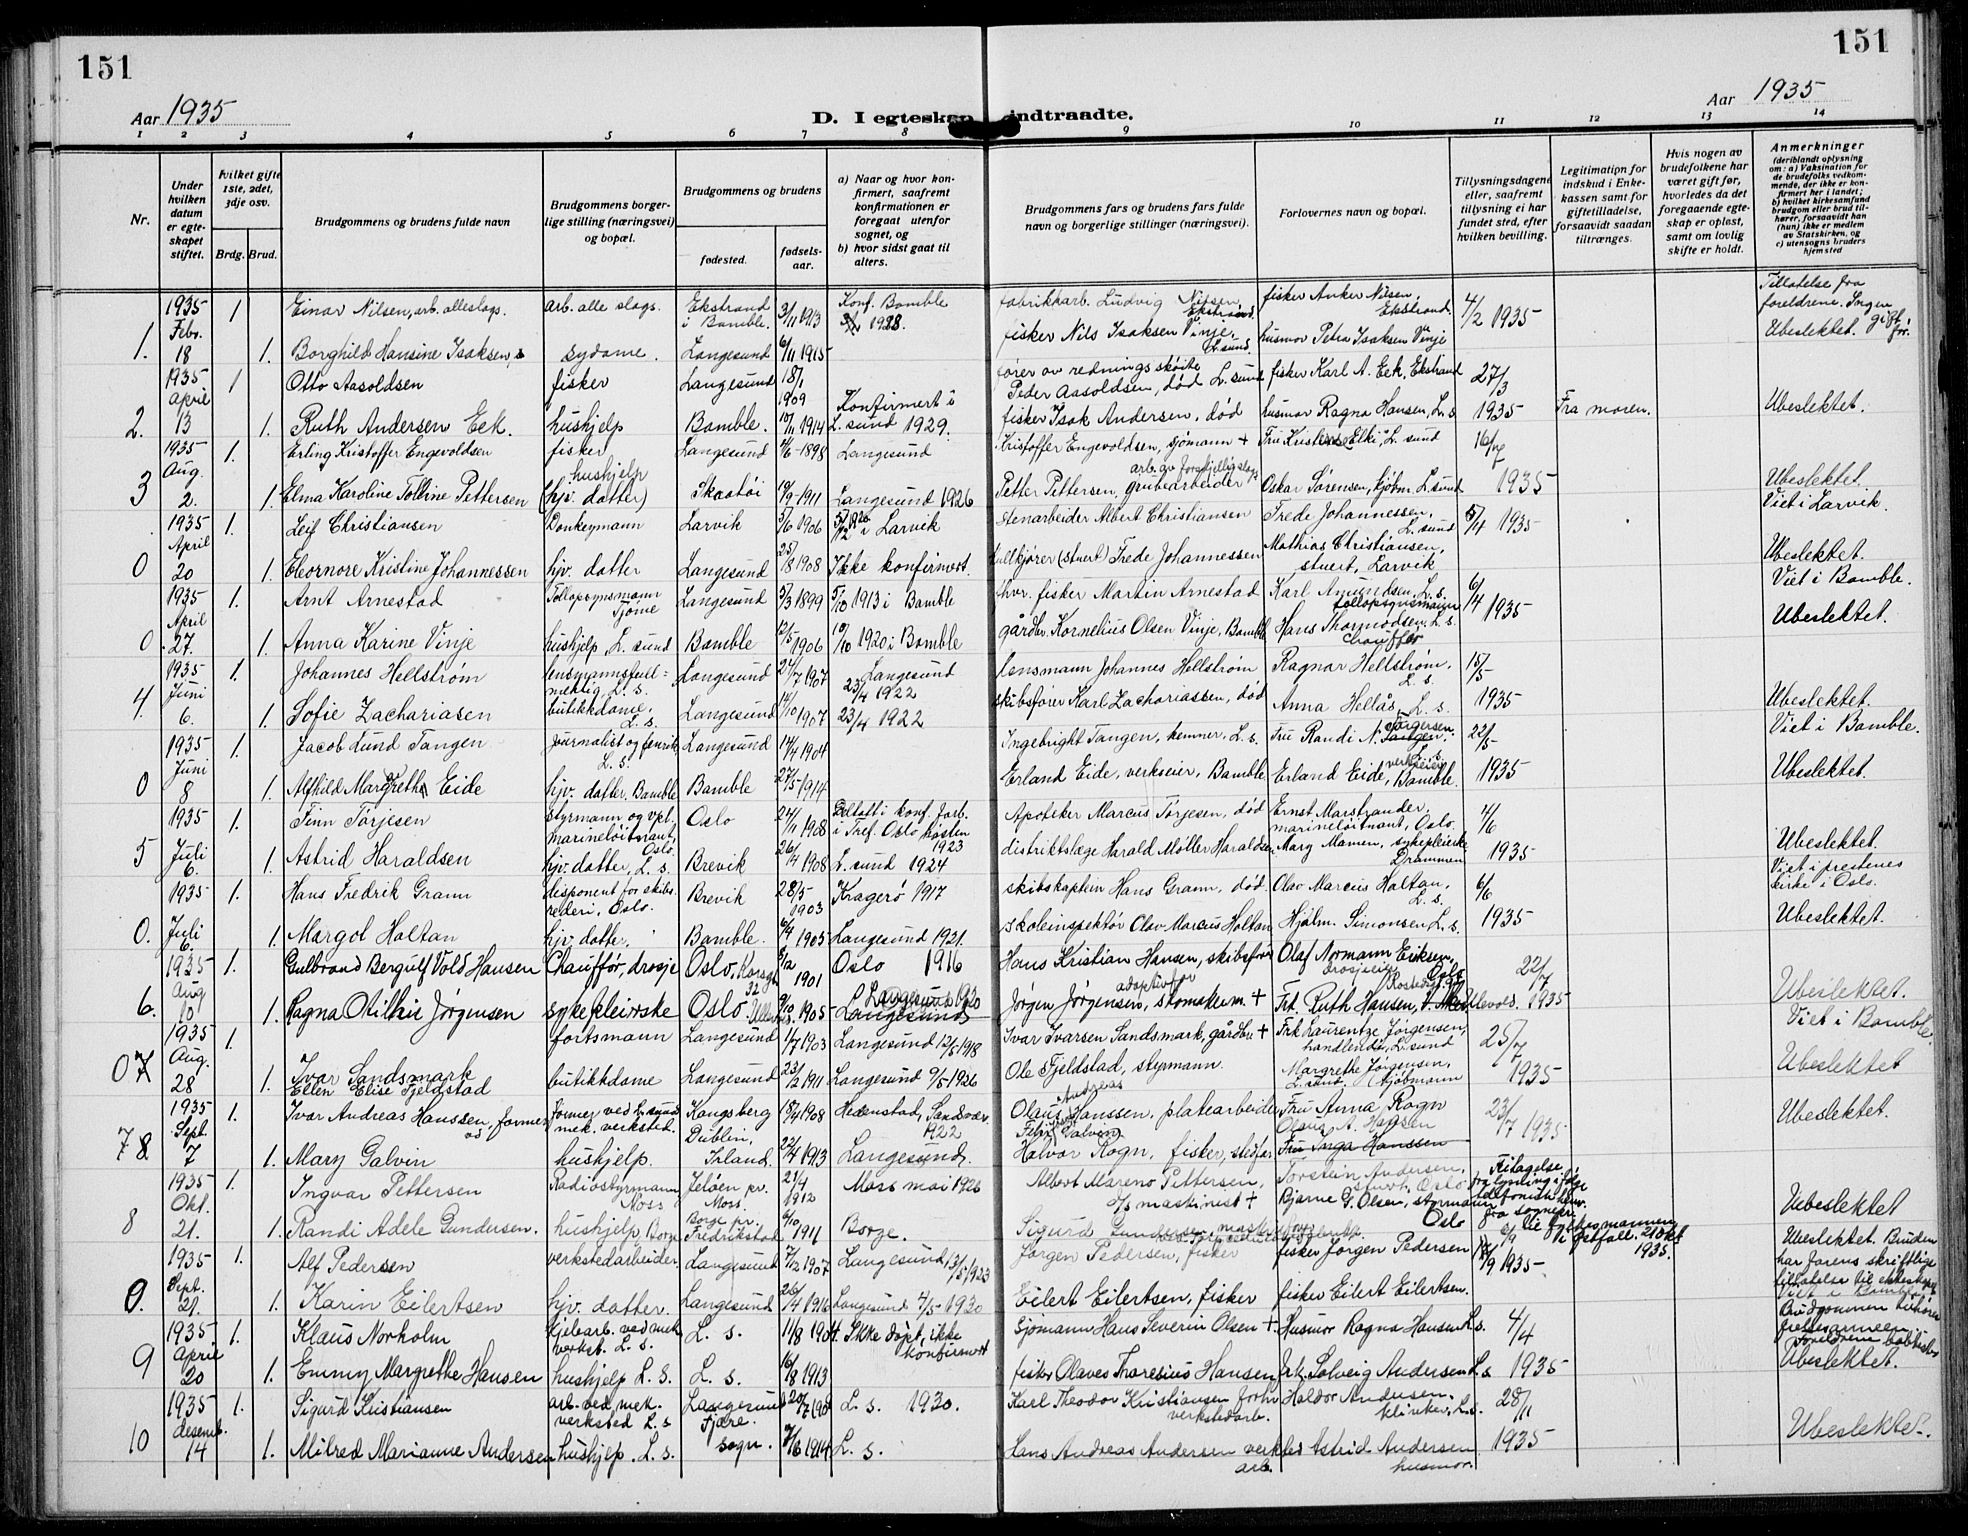 151
151
Aar 1935
D. I egteskap indtraadte.
Aar 1935
1 2 3 4 5 6 7 8 9 10 11 12 13 14
Nr.
Under hvilken datum er egteskapet stiftet.
Hvilket gifte 1ste, 2det, 3dje osv.
Brdg. Brud.
Brudgommens og brudens fulde navn
Brudgommens borgerlige stilling (næringsvei) og bopæl.
Brudgommens og brudens
fødested.
fødselsaar.
a) Naar og hvor konfirmert, saafremt konfirmationen er foregaat utenfor sognet, og
b) hvor sidst gaat til alters.
Brudgommens fars og brudens fars fulde navn og borgerlige stillinger (næringsvei).
Forlovernes navn og bopæl.
Tillysningsdagene eller, saafremt tillysning ei har fundet sted, efter hvilken bevilling.
Legitimation for indskud i Enkekassen samt for giftetilladelse, forsaavidt saadan tiltrænges.
Hvis nogen av brudefolkene har været gift før, hvorledes da det foregaaende egteskap er opløst, samt om lovlig skifte er holdt.
Anmerkninger
(deriblandt oplysning om: a) Vaksination for de brudefolks vedkommende, der ikke er konfirmert her i landet; b) hvilket kirkesamfund brudgom eller brud tilhører, forsaavidt han (hun) ikke er medlem av Statskirken, og c) utensogns bruders hjemsted
1. 1935 Febr. 18 1 Einar Nilsen, arb. alleslags. arb. alle slags. Ekstrand i Bamble. 3/11 1913 Konf. Bamble fabrikkarb. Ludvig Nilsen Ekstrand. fisker Anker Nilsen, Ekstrand. 4/2 1935 Tillatelse fra foreldrene. Ingen gift før.
1. Borghild Hansine Isaksen, sydame. Langesund 6/11 1915 fisker Nils Isaksen Vinje, L.sund. husmor Petra Isaksen Vinje Ubeslektet.
2. 1935 April 13 1 Otto Aasoldsen fisker Langesund 18/1 1909 fører av redningsskøite Peder Aasoldsen, død L.sund fisker Karl A. Eek, Ekstrand 27/3
1. Ruth Andersen Eek. hushjelp Bamble. 1914 Konfirmert i L.sund 1929. fisker Isak Andersen, død husmor Ragna Hansen, L.s. 1935 Fra moren. Ubeslektet.
3 1935 Aug. 2. 1. Erling Kristoffer Engevoldsen fisker Langesund 1898 Langesund Kristoffer Engevoldsen, sjømann + L.sund
1. Elma Karoline Tolline Pettersen hushjelp (hjv. datter) Skaatøi 19/9 1911 Langesund 1926 Petter Pettersen, grubearbeider Oskar Sørensen, kjøbm. L.sund 1935 Ubeslektet.
0 1935 April 20 1. Leif Christiansen Donkeymann Larvik 5/6 1906 i Larvik stenarbeider Albert Christiansen Trede Johannessen, L.sund 1935 Viet i Larvik.
1. Eleornore Kristine Johannessen hjv. datter Langesund 25/8 1908 Ikke konfirmert. (stuert) Trede Johannessen Mathias Christiansen, stuert, Larvik Ubeslektet.
0 1935 April 27. 1. Arnt Arnestad Tollopsynsmann Tjøme Langesund 3/3 1899 5/10 1913 i Bamble fhv. fisker Martin Arnestad Karl Amundsen, L.s. tollopsynsmann 6/4 1935 Viet i Bamble.
1. Anna Karine Vinje hushjelp L.sund Bamble 12/5 1906 10/10 1920 i Bamble gårdbr. Kornelius Olsen Vinje, Bamble Hans Thormodsen, L.s. Chauffør Ubeslektet.
4. 1935 Juni 6. 1. Johannes Hellstrøm lensmannsfullmektig L.s. Langesund 24/7 1907 Langesund 23/4 1922 lensmann Johannes Hellstrøm Ragnar Hellstrøm, L.s. 15/5
1. Sofie Zachariasen butikkdame, L.s. Langesund 1907 23/4 1922 skibsfører Karl Zachariassen, død Anna Hellås, L.s. 1935 Ubeslektet.
0 1935 Juni 8 1. Jacob Lund Tangen Journalist og fenrik L.s. Langesund 14/4 1904 Ingebright Tangen, kemner, L.s. Fru Randi N. Jørgensen L.s. 22/5 Viet i Bamble.
1. Alfhild Margrethe Eide hjv. datter. Bamble Bamble 27/5 1914 Erland Eide, verkseier, Bamble Erland Eide, verkseier Bamble. 1935 Ubeslektet.
5 1935 Juli 6. 1. Finn Tørjesen styrmann og vpl. marineløitnant, Oslo. Oslo 24/11 1908 Deltatt i konf. forb. i Tref. Oslo høsten 1923 Apotiker Marcus Tørjesen, død Ernst Marstrander, marineløitnant, Oslo. 4/6
1. Astrid Haraldsen hjv. datter, L.s. Brevik 26/4 1908 L.sund 1924 distriktslæge Harald Møller Haraldsen Marg Mamen, sykepleierske Drammen 1935 Ubeslektet.
0. 1935 Juli 6. 1. Hans Fredrik Gram disponent for skibsrederi, Oslo. Brevik 28/5 1903 Kragerø 1917 skibskaptein Hans Gram, død Olav Marcus Holtan, L.s. 6/6 Viet i prestenes kirke i Oslo.
1. Margot Holtan hjv. datter, Bamble. 6/4 1905 Langesund 1921. skoleinspektør Olav Marcus Holtan Hjalm. Simonsen L.s. 1935 Ubeslektet.
6. 1935 Aug 10 1. Gulbrand Bergulf Vold Hansen Chauffør, drosje Oslo, 32 1901 Oslo 1916 Hans Kristian Hansen, skibsfører Olaf Normann Eriksen, drosjeeier Oslo 22/7
1. Ragna Otilhie Jørgensen sykepleierske Oslo 9/10 1905 Langesund 1920 adoptivfar Jørgen Jørgensen, skomakerm. + Frk. Ruth Hansen, 1935 Ubeslektet.
07 1935 Aug. 28 1. Ivar Sandsmark fortsmann Langesund 1/7 1903 Langesund 12/5 1918 Ivar Ivarsen Sandsmark, gårdbr. + Frk Laurentze Jørgensen, handlende, L.sund 25/7 Viet i Bamble
1. Ellen Elise Fjeldstad butikkdame Langesund 23/2 1911 Langesund 9/5 1926 Ole Fjeldstad, styrmann. Margrethe Jørgensen, L.sund. Kjøbmann 1935 Ubeslektet
78 1935 Sept. 7 1. Ivar Andreas Hanssen, former Former ved L.sund mek. verksted. Kongsberg 18/4 1908 Hedenstad, Sandsvær 1922 Olaus Andreas Hanssen, platearbeider Fru Anna Rogn 23/7 1935 Ubeslektet.
1. Mary Galvin hushjelp. Dublin, Irland. 22/4 1913 Langesund. Felix Galvin Halvor Rogn, fisker, stedfar Olaus A. Hanssen Fru Inga Hanssen
8 1935 Okt. 21. 1. Ingvar Pettersen Radiostyrmann Moss Jeløen pr. Moss. 21/4 1912 Moss mai 1926 Albert Mareno Pettersen, maskinist + Torstein Andersen, stuert, Oslo
1. Randi Adele Gundersen. hushjelp, Borge Borge pr. Fredrikstad 6/10 1911 Borge. Sigurd Gundersen, Bjarne G. Olsen, styrmann Oslo 21 okt 1935. Uebeslektet
0. 1935 Sept. 21. 1. Alf Pedersen verkstedarbeider Langesund 7/12 1907 Langesund 13/5 1923 Jørgen Pedersen, fisker fisker Jørgen Pedersen 1935 Ubeslektet. Bruden har farens skriftlige tillatelse til ekteskapet
1. Karin Eilertsen hjv. datter. Langesund 26/4 1916 Langesund 4/5 1930 Eilert Eilertsen, fisker fisker Eilert Eilertsen. Viet i Bamble
9 1935. April 20 1. Klaus Norholm kjelearb. ved mek. verkst. L.s. L.s. 11/8 1904. Ikke døpt, ikke konfirmert Sjømann Hans Severin Olsen +. Husmor Ragna Hansen L.s. 4/4 Brudgommen tilhører frelsesarmeen. Foreldrene babtister
1. Emmy Margrethe Hansen hushjelp L.S. L.s. 16/8 1913 fisker Olaves Tharesius Hansen Frk. Solveig Andersen L.s 1935 Ubeslektet.
10 1935 desemb. 14 1. Sigurd Kristiansen arb. ved mek. verksted L.s Langesund L.s. 1930. Karl Theodor Kristiansen verkstedarb. Haldor Andersen, klinker, L.s. 28/11
1. Milred Marianne Andersen hushjelp. L.s. Fjære sogn. 7/6 1914 L.s. Hans Andreas Andersen verksted arb. Astrid Andersen husmor. 1935 Ubeslektet.